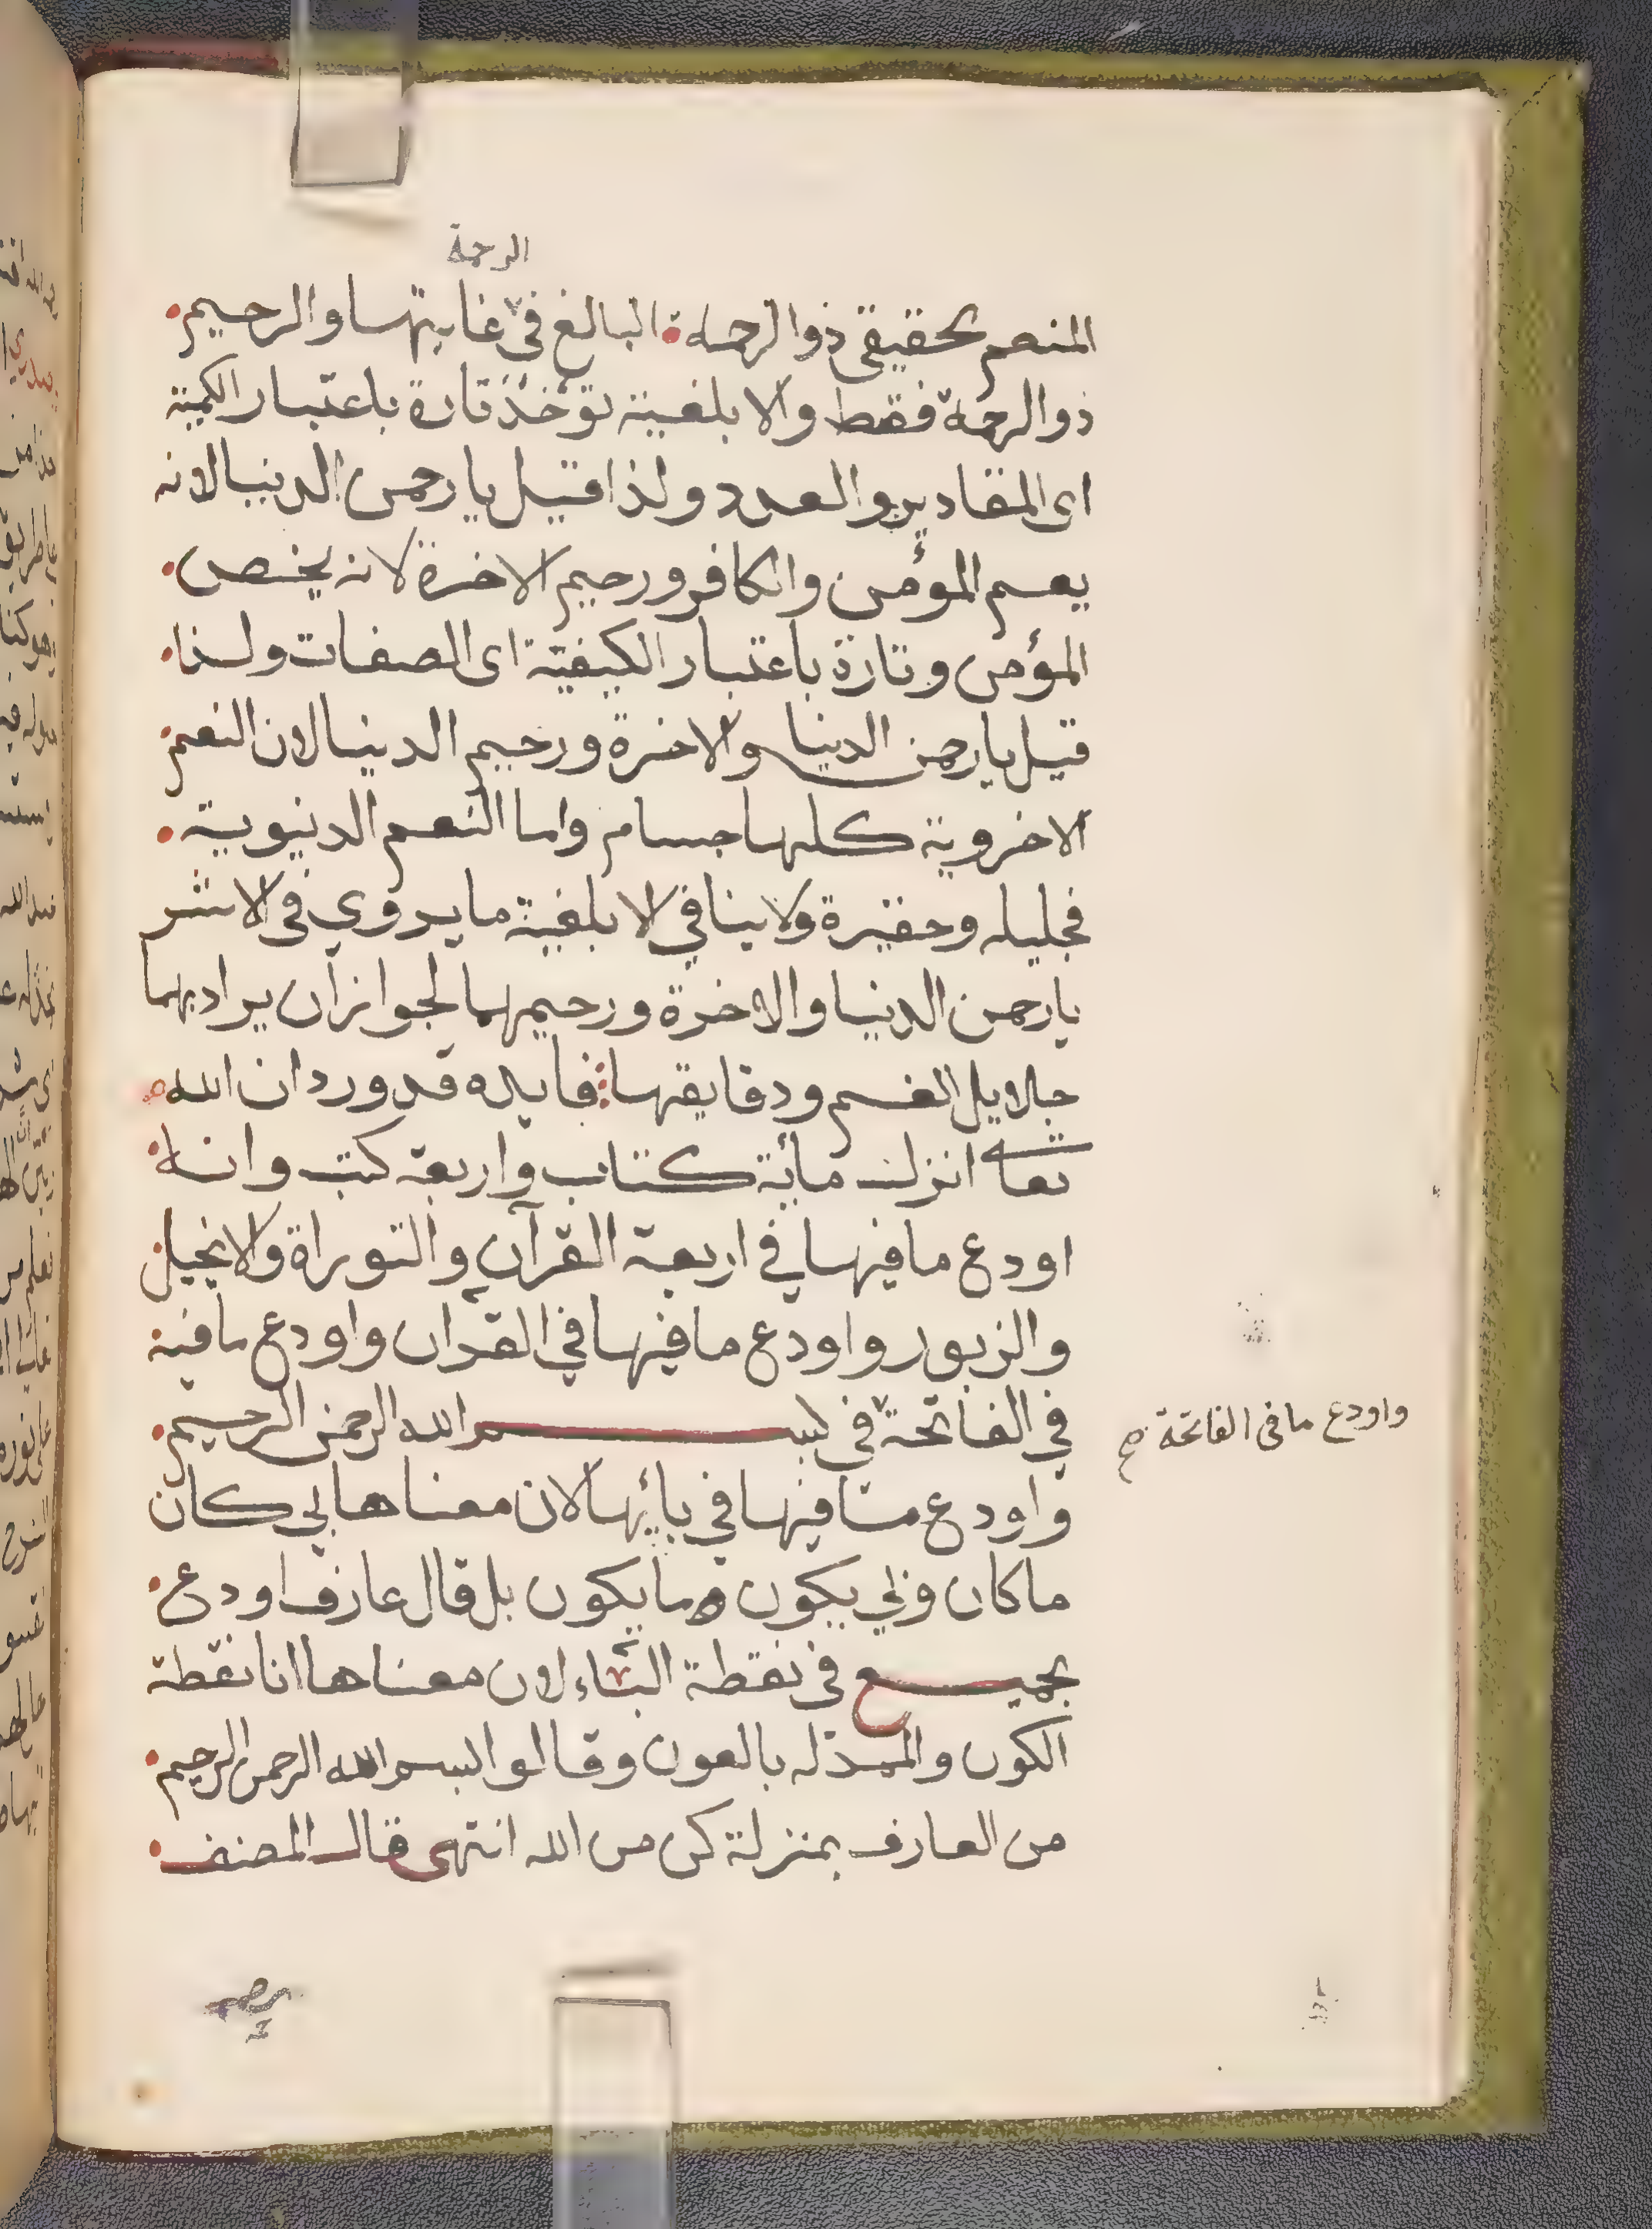 الرحمة
المنعم بحقيقى ذوالرحمة البالغ فى غايتها والرحيم
ذوالرحمة فقط والابلغية تؤخذ تارة باعتبار الكمية
اى المقادير والعدد ولذا قيل يا رحمن الدنيا لانه
يعم المؤمن والكافر ورحيم الاخرة لانه يخص
المؤمن وتارة باعتبار الكيفية اى الصفات ولذا
قيل يا رحمن الدنيا والاخرة ورحيم الدنيا لان النعم
الاخروية كلها جسام واما النعم الدنيوية
فجليله وحقيرة ولاينافي الابلغية ما يروي فى الاثر
يا رحمن الدنيا والاخرة ورحيمهما لجواز ان يراد بهما
جلايل النعم ودقايقها فايده قد ورد ان الله
تعا انزل مأية كتاب واربعة كتب وانه
اودع ما فيها في اربعة القرآن والتوراة والانجيل
والزبور واودع ما فيها في القران واودع مافيه
في الفاتحة في بسم الله الرحمن الرحيم
واودع ما فى الفاتحة صح
واودع ما فيها في بائها لان معناها بي كان
ما كان وبي يكون ما يكون بل قال عارف اودع
جميع فى نقطة الباء لان معناها انا نقطة
الكون والمـدله بالعون وقالوا البسم الله الرحمن الرحيم
من العارف بمنزلة كن من الله انتهى قال المصنف